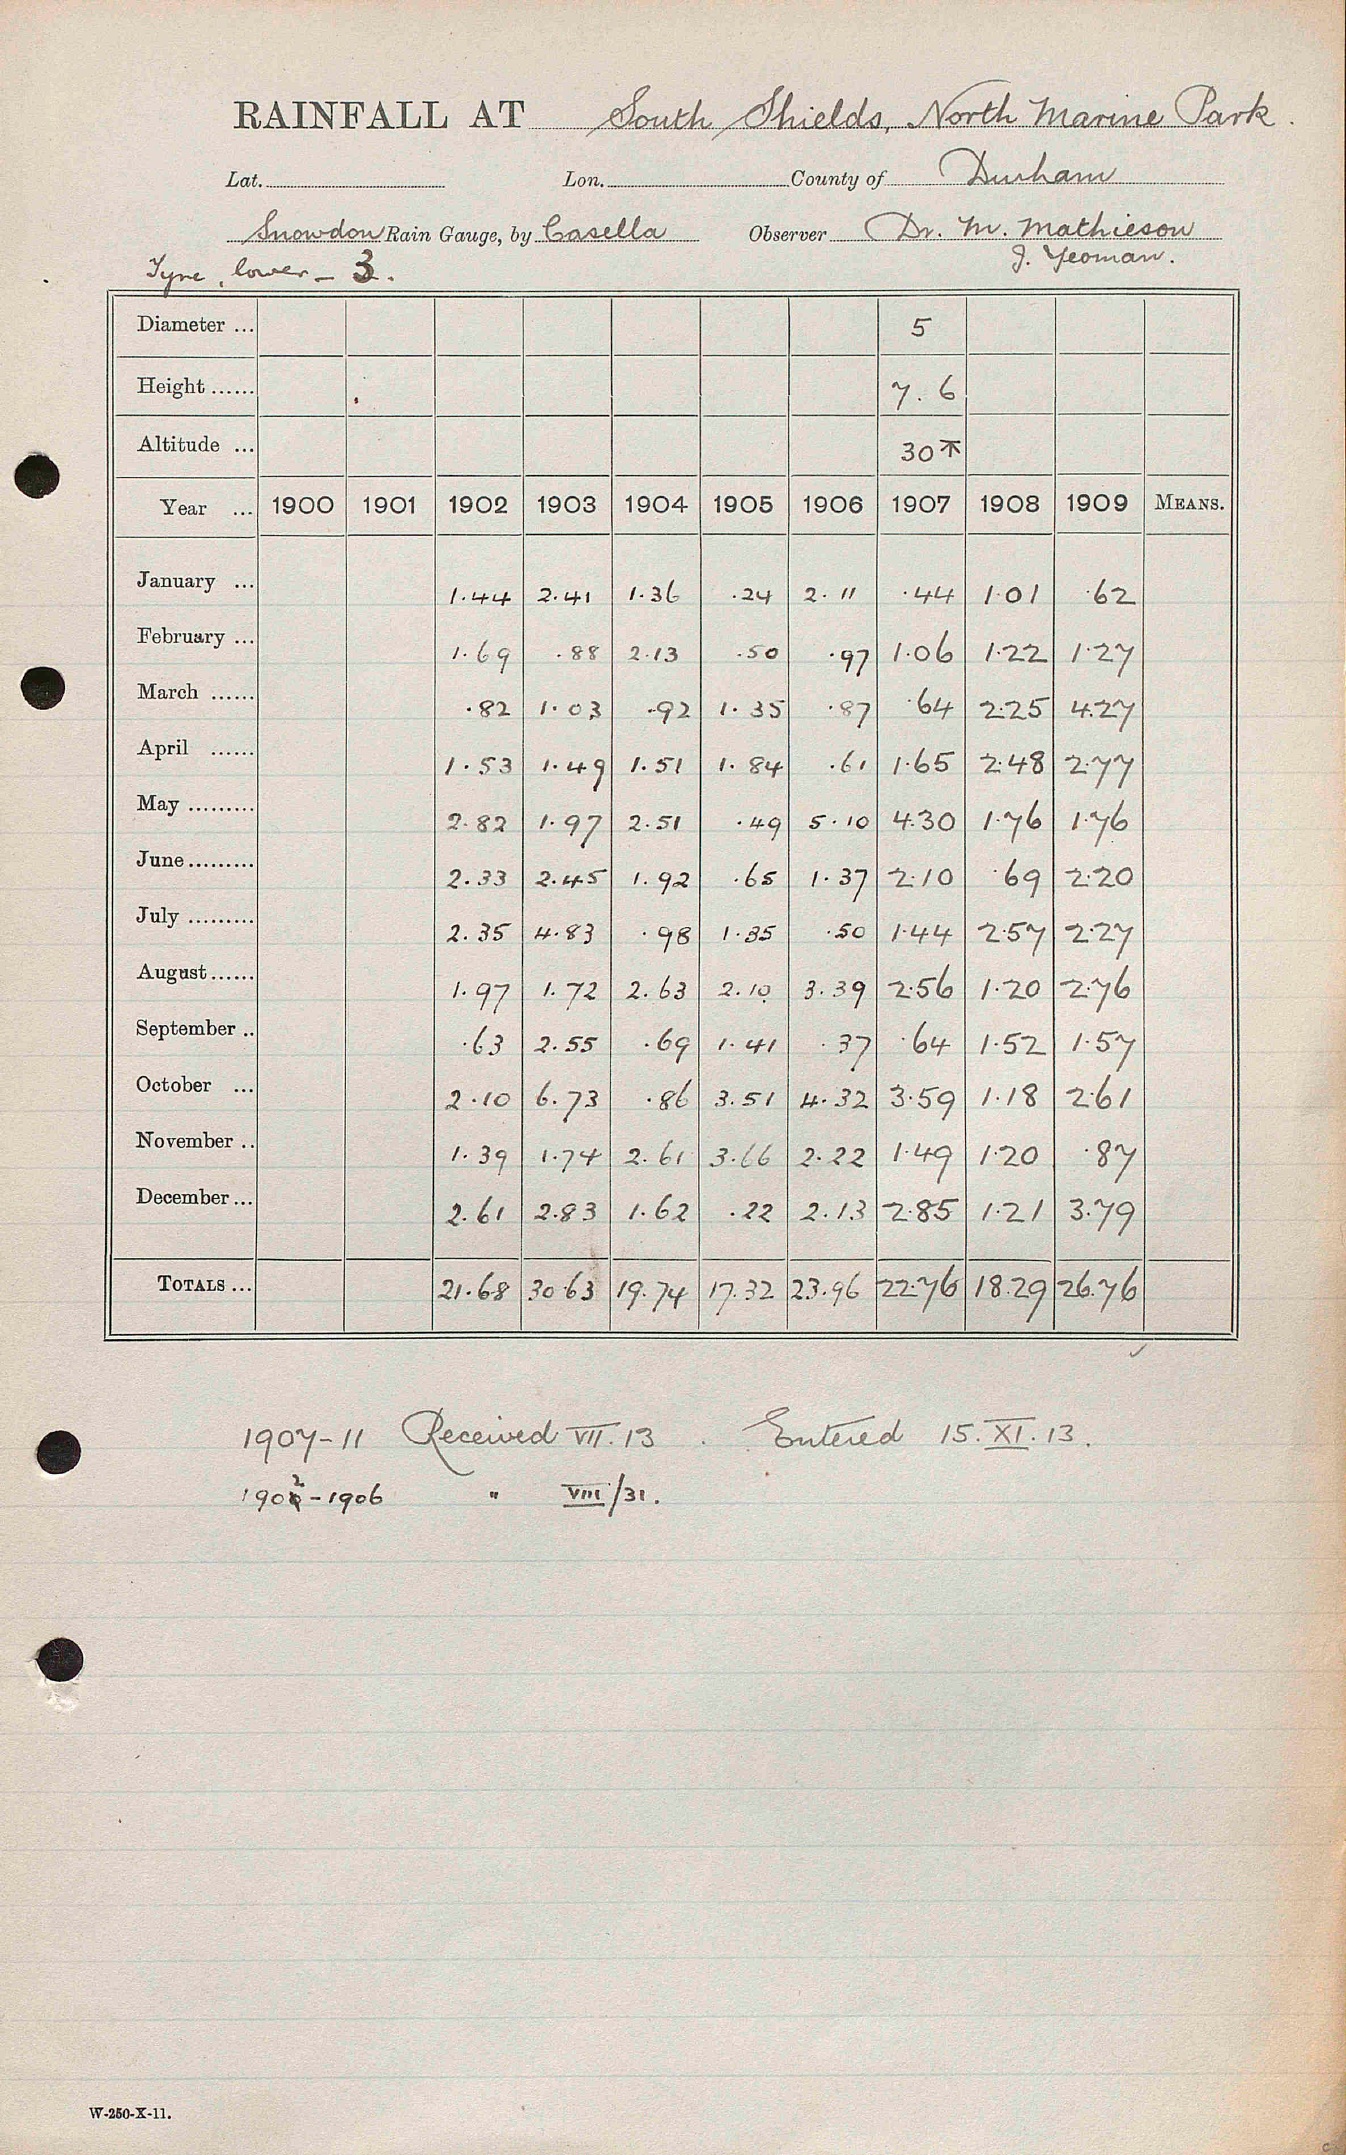 RAINFALL AT South Shields, North Marine Park.
Lat. Lon. County of Durham
Snowdon Rain Gauge, by Casella Observer Dr. M. Mathieson
J. Yeoman.
Tyne, lower - 3.
Diameter ... 5
Height ...... 7. 6
Altitude ... 30
Year ... 1900 1901 1902 1903 1904 1905 1906 1907 1908 1909 MEANS.
January ... 1.44 2.41 1.36 .24 2.11 .44 1.01 .62
February ... 1.69 .88 2.13 .50 .97 1.06 1.22 1.27
March ...... .82 1.03 .92 1.35 .87 .64 2.25 4.27
April ...... 1.53 1.49 1.51 1.84 .61 1.65 2.48 2.77
May ......... 2.82 1.97 2.51 .49 5.10 4.30 1.76 1.76
June ......... 2.33 2.45 1.92 .65 1.37 2.10 .69 2.20
July ......... 2.35 4.83 .98 1.35 .50 1.44 2.57 2.27
August ...... 1.97 1.72 2.63 2.10 3.39 2.56 1.20 2.76
September .. .63 2.55 .69 1.41 .37 .64 1.52 1.57
October ... 2.10 6.73 .86 3.51 4.32 3.59 1.18 2.61
November .. 1.39 1.74 2.61 3.66 2.22 1.49 1.20 .87
December ... 2.61 2.83 1.62 .22 2.13 2.85 1.21 3.79
TOTALS ... 21.68 30.63 19.74 17.32 23.96 22.76 18.29 26.76
1907-11 Received VII.13. Entered 15.XI.13.
1902-1906 " VIII/31.
W-250-X-11.